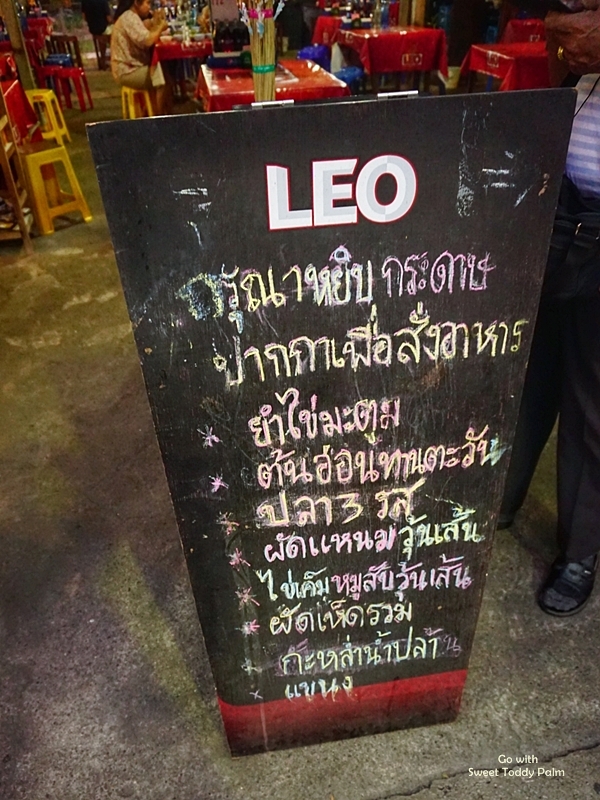 LEO
LEO
กรุณาหยิบ กระดาษ
ปากกาเพื่อสั่งอาหาร
* ยำไข่มะตูม
* ต้นอ่อนทานตะวัน
ปลา 3 รส
* ผัดแหนมวุ้นเส้น
* ไข่เค็มหมูสับวุ้นเส้น
* ผัดเห็ดรวม
* กะหล่ำน้ำปลา
* แขนง
Go with
Sweet Toddy Palm